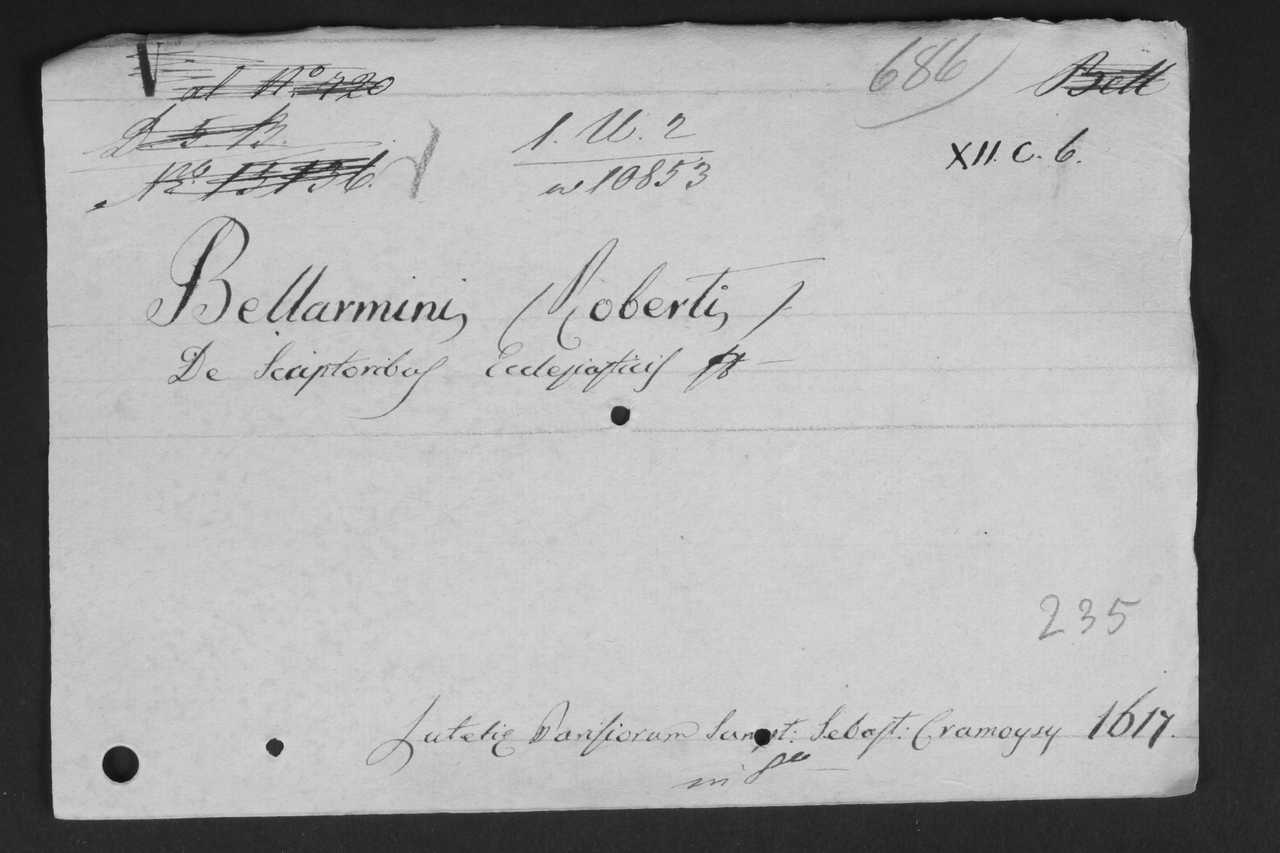 al No 720
686
Bell
D 5 B.
1. U. 2
XII. C. 6.
No. 13136.
10853
Bellarmini, Roberti,
De Scriptoribus Ecclesiasticis
235
Lutetiæ Parisiorum Sumpt: Sebast: Cramoysy 1617.
in 8vo